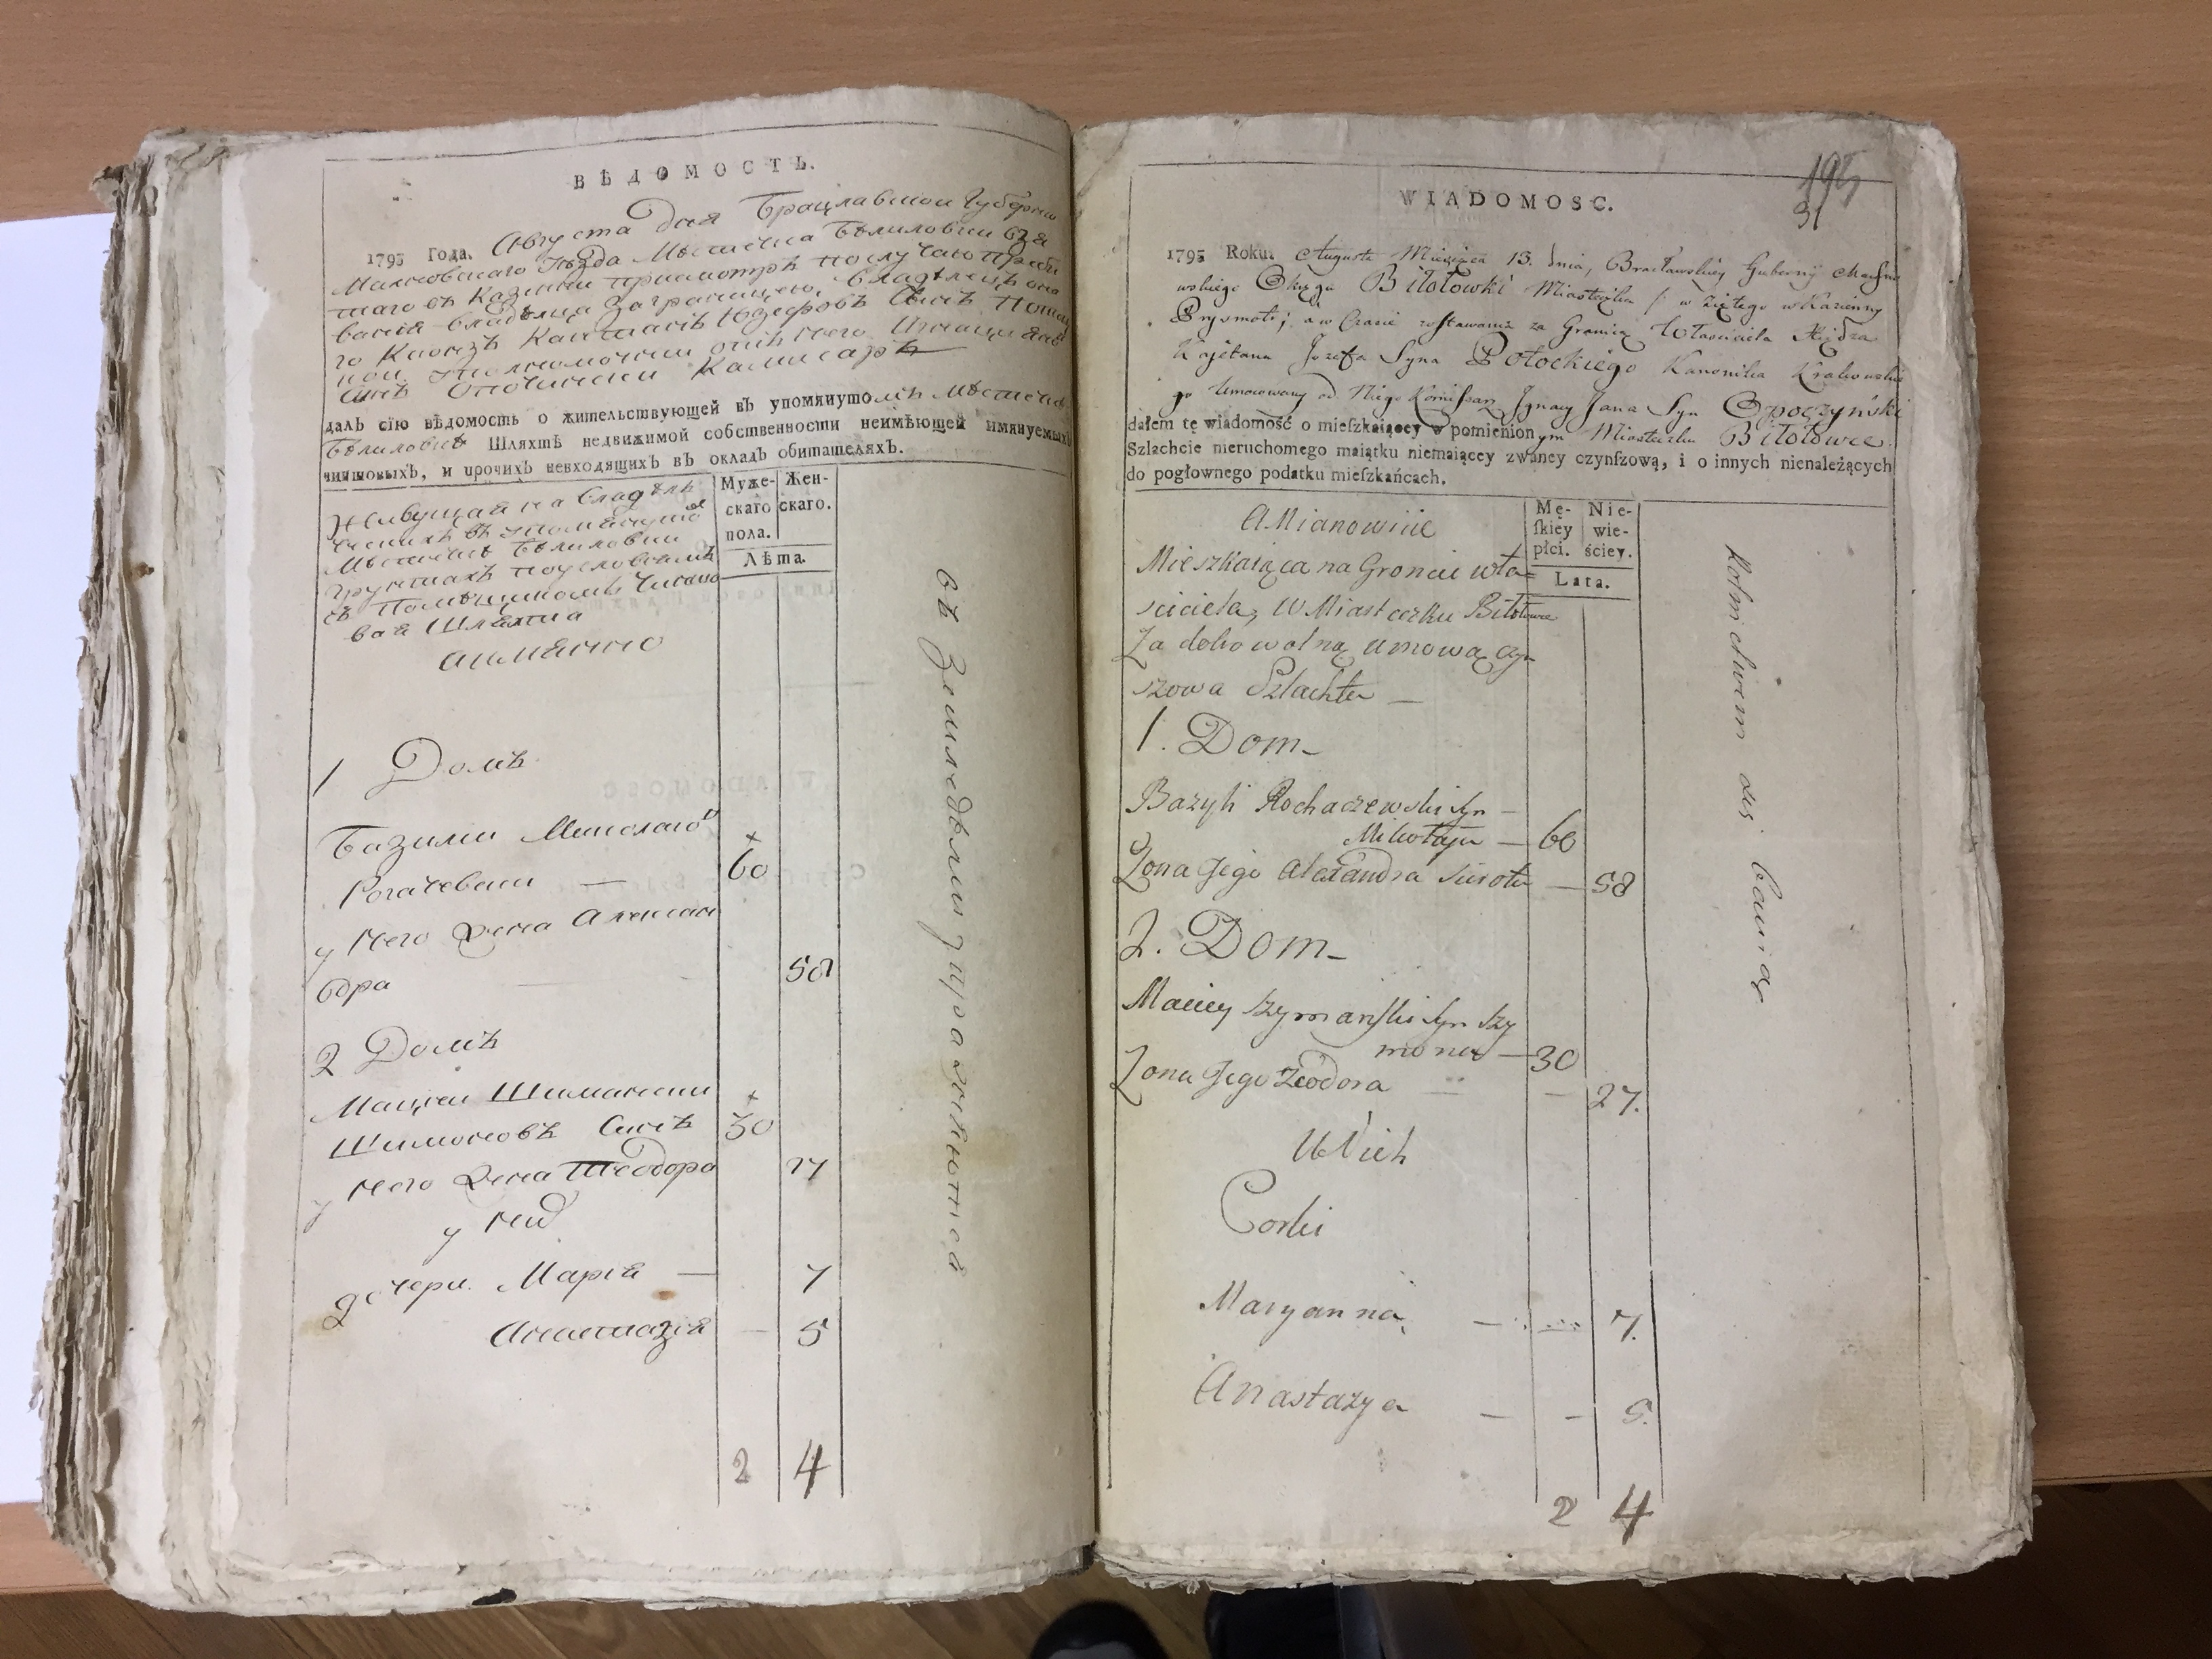 ВѢДОМОСТЬ.
1795 Года. Августа Дня Брацлавской Губернии
Махновскаго уѣзда Мѣстечка Бѣлиловки взя
таго въ Казенни присмотръ по случаю преби
ванія владѣльца заграницею, Владѣлецъ оно
го Ксіонзъ Каетанъ Юзефовъ Сынъ Потоц
кои уполномочени отъ него Игнаци Яновъ
Сынъ Опочински Камисаръ
далъ сію вѣдомость о жительствующей въ упомянутомъ Мѣстечкѣ
Бѣлиловкѣ Шляхтѣ недвижимой собственности неимѣющей имянуемыхъ
чиншовыхъ, и прочихъ невходящихъ въ окладъ обитателяхъ.
Муже-
скаго
пола.
Жен-
скаго.
Лѣта.
Живущая на Владѣль
ческихъ въ упомянутой
Мѣстечкѣ Бѣлиловки
грунтахъ по условіямъ
съ Помѣщикомъ Чиншо
вая Шляхта
а имянно
1 Домъ
Базили Миколаѣ
Рогачевски — 60
у него Жена Алексан
дра 58
2 Домъ
Мацеи Шимански
Шимоновъ Сынъ 30
у него Жена Теодора 27
у них
дочери. Марія — 7
Анастазія — 5
2 4
въ земледѣліи упражняются
195
31
WIADOMOSC.
1795 Roku. Augusta Miesiąca 13. dnia, Bracławskiey Guberny Machno
wskiego Okręgu Biłołowki Miasteczka /: w ziętego w Kazienny
Prysmotr; a w Czasie zostawania za Granicą Własciciela Xiędza
Kajetana Jozefa Syna Potockiego Kanonika Krakowskie
go Umocowany od Niego Komissarz Ignacy Jana Syn Opoczyński
dałem tę wiadomość o mieſzkaiącey w pomienionym Miasteczku Biłołowce
Szlachcie nieruchomego maiątku niemaiącey zwaney czynſzową, i o innych nienależących
do pogłownego podatku mieſzkańcach.
Mę-
ſkiey
płci.
Nie-
wie-
ściey.
Lata.
A Mianowicie
Mieszkaiąca na Groncie wła=
sciciela, w Miasteczku Biłołowce
Za dobrowolną umową czyn
szowa Szlachta —
1. Dom—
Bazyli Rochaczewski Syn —
Mikołaja — 60
Żona Jego Alexandra — 58
2. Dom—
Maciey Szymański Syn Szy
mona — 30
Żona Jego Teodora — 27.
U Nich
Corki
Maryanna — 7.
Anastazya — — 5.
2 4
Rolnictwem się bawią